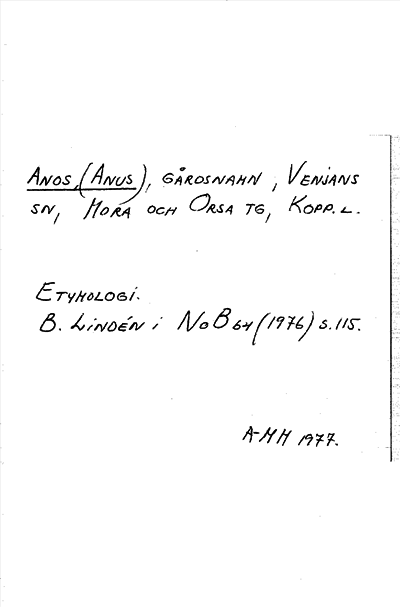 Anos, (Anus), gårdsnamn, Venjans
sn, Mora och Orsa tg, Kopp. l.
Etymologi.
B. Lindén i NoB 64 (1976) s. 115.
A-MH 1977.